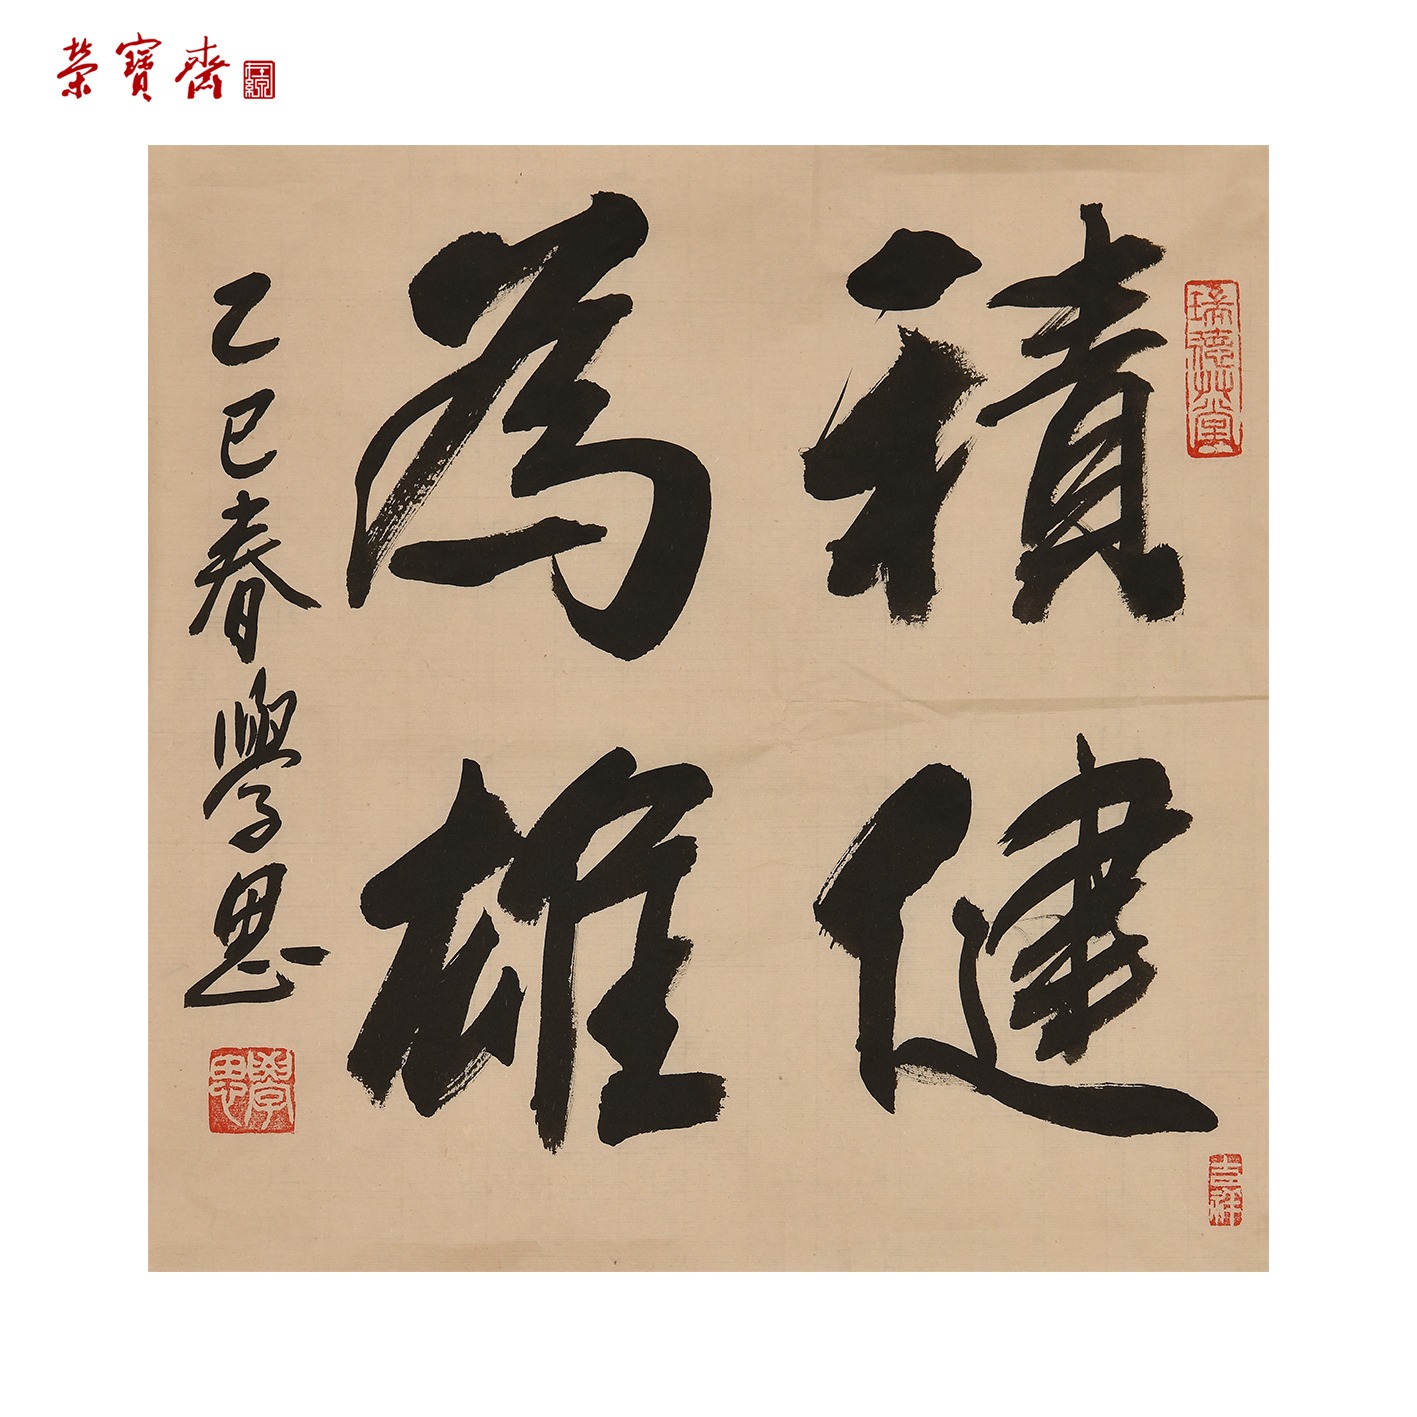 榮寶齋
在線
積健
為雄
乙巳春學思
瑞德草堂
學思
吉祥